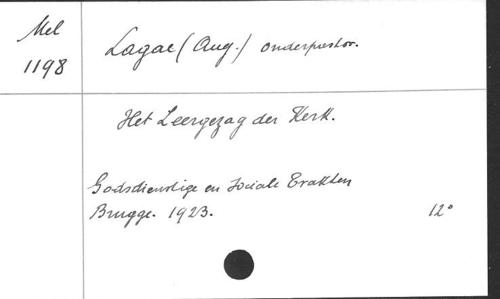 Mel
1198
Lagae (Aug.) onderpastor.
Het Leergezag der Kerk.
Godsdienstige en Sociale Trakten
Brugge. 1923. 12°